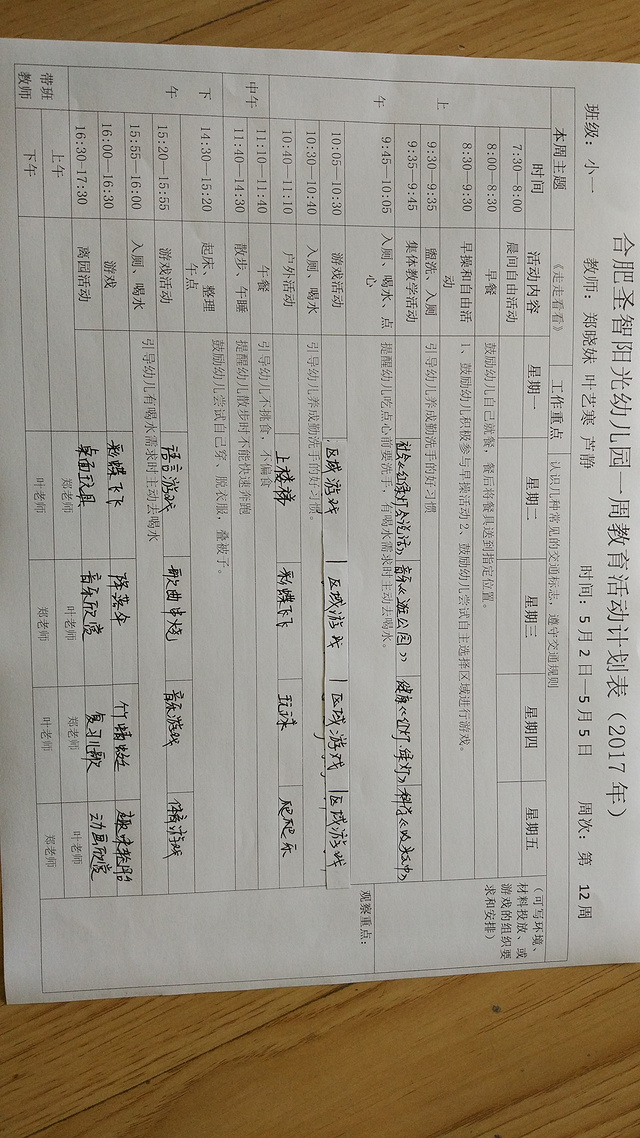 合肥圣智阳光幼儿园一周教育活动计划表（2017 年）
班级：小一 教师：郑晓妹 叶艺寒 芦静 时间：5 月 2 日—5 月 5 日 周次：第 12 周
本周主题 《走走看看》 工作重点 认识几种常见的交通标志，遵守交通规则
时间 活动内容 星期一 星期二 星期三 星期四 星期五
（可写环境、材料投放、或游戏的组织要求和安排）
上午
7:30—8:00 晨间自由活动
8:00—8:30 早餐 鼓励幼儿自己就餐，餐后将餐具送到指定位置。
8:30—9:30 早操和自由活动 1、鼓励幼儿积极参与早操活动 2、鼓励幼儿尝试自主选择区域进行游戏。
9:30—9:35 盥洗、入厕 引导幼儿养成勤洗手的好习惯
9:35—9:45 集体教学活动 社会《红绿灯会说话》 音乐《逛公园》 健康《红灯绿灯》 科学
9:45—10:05 入厕、喝水、点心 提醒幼儿吃点心前要洗手，有喝水需求时主动去喝水。
观察重点：
10:05—10:30 游戏活动 区域游戏 区域游戏 区域游戏 区域游戏
10:30—10:40 入厕、喝水 引导幼儿养成勤洗手的好习惯。
10:40—11:10 户外活动 上楼梯 彩蝶飞飞 玩球 爬爬乐
中午
11:10—11:40 午餐 引导幼儿不挑食，不偏食
11:40—14:30 散步、午睡 提醒幼儿散步时不能快速奔跑
下午
14:30—15:20 起床、整理 午点 鼓励幼儿尝试自己穿、脱衣服，叠被子。
15:20—15:55 游戏活动 语言游戏 歌曲串烧 音乐游戏 体育游戏
15:55—16:00 入厕、喝水 引导幼儿有喝水需求时主动去喝水
16:00—16:30 游戏 彩蝶飞飞 降落伞 竹蜻蜓 趣味轮胎
16:30—17:30 离园活动 桌面玩具 音乐欣赏 复习儿歌 动画欣赏
带班教师
上午 郑老师 叶老师 郑老师 叶老师
下午 叶老师 郑老师 叶老师 郑老师